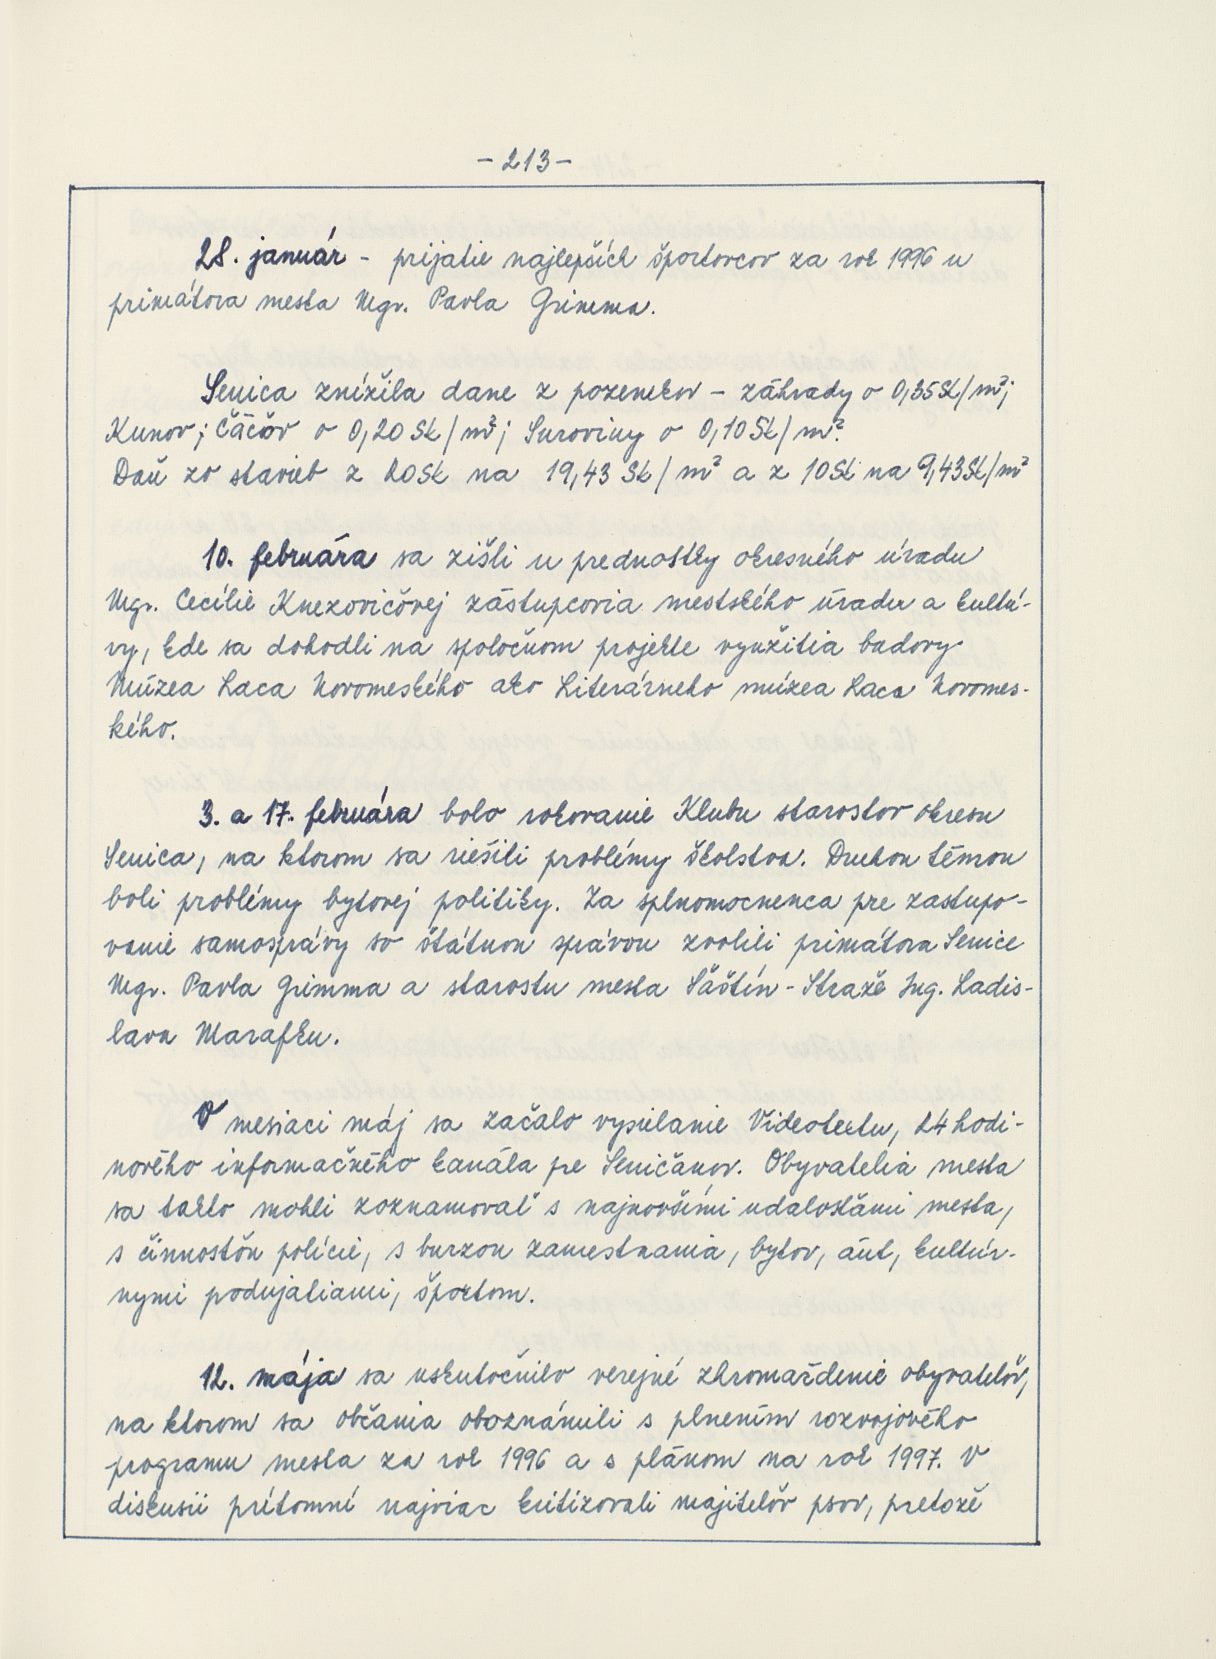 - 213 -
28. január - prijatie najlepších športovcov za rok 1996 u
primátora mesta Mgr. Pavla Grimma.
Senica znížila dane z pozemkov - záhrady o 0,35 Sk/m²;
Kunov; Čáčov o 0,20 Sk/m²; Suroviny o 0,10 Sk/m².
Daň zo stavieb z 20 Sk na 19,43 Sk/m² a z 10 Sk na 9,43 Sk/m²
10. februára sa zišli u prednostky okresného úradu
Mgr. Cecílie Knezovičovej zástupcovia mestského úradu a kultú-
ry, kde sa dohodli na spoločnom projekte využitia budovy
Múzea Laca Novomeského ako Literárneho múzea Laca Novomes-
kého.
3. a 17. februára bolo rokovanie Klubu starostov okresu
Senica, na ktorom sa riešili problémy školstva. Druhou témou
boli problémy bytovej politiky. Za splnomocnenca pre zastupo-
vanie samosprávy so štátnou správou zvolili primátora Senice
Mgr. Pavla Grimma a starostu mesta Šaštín - Stráže Ing. Ladis-
lava Marafku.
V mesiaci máj sa začalo vysielanie Videotextu, 24 hodi-
nového informačného kanála pre Seničanov. Obyvatelia mesta
sa takto mohli zoznamovať s najnovšími udalosťami mesta,
s činnosťou polície, s burzou zamestnania, bytov, áut, kultúr-
nymi podujatiami, športom.
12. mája sa uskutočnilo verejné zhromaždenie obyvateľov,
na ktorom sa občania oboznámili s plnením rozvojového
programu mesta za rok 1996 a s plánom na rok 1997. V
diskusii prítomní najviac kritizovali majiteľov psov, pretože